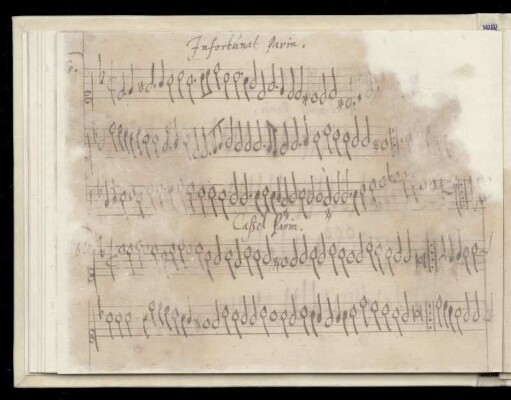 Infortunat Pavin.
Cassel Pavin.